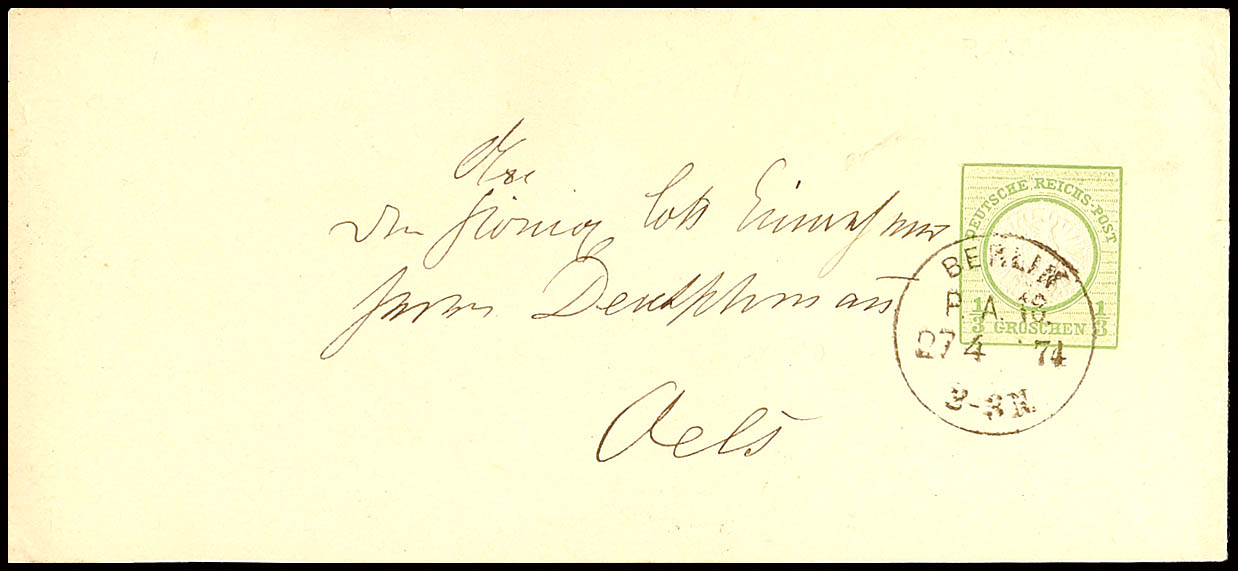 An
den König Lott Einnehmer
Herrn Deutschmann
Oels
DEUTSCHE REICHS-POST
1/3 GROSCHEN 1/3
BERLIN
P. A. 18.
27 4 74
2-3 N.